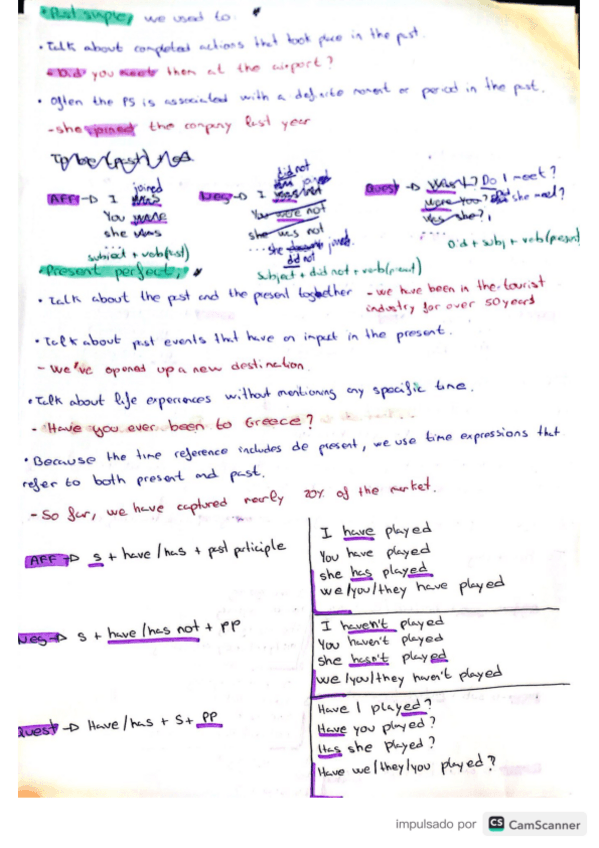 Past simple, we used to.
• Talk about completed actions that took place in the past.
- Did you meet them at the airport?
• Often the PS is associated with a definite moment or period in the past.
- she joined the company last year
AFF → I joined
You were
she was
subject + verb (past)
Neg → I did not join
You were not
she was not
... she did not joined
subject + did not + verb (present)
Quest → Do I meet?
Were you? Did she meet?
Was she?
Did + subj + verb (present)
Present perfect,
• Talk about the past and the present together - we have been in the tourist
industry for over 50 years
• Talk about past events that have an impact in the present.
- We've opened up a new destination.
• Talk about life experiences without mentioning any specific time.
- Have you ever been to Greece?
• Because the time reference includes de present, we use time expressions that
refer to both present and past.
- So far, we have captured nearly 20% of the market.
AFF → s + have/has + past participle
I have played
You have played
she has played
we/you/they have played
Neg → s + have/has not + PP
I haven't played
You haven't played
She hasn't played
we/you/they haven't played
Quest → Have/has + S + PP
Have I played?
Have you played?
Has she played?
Have we/they/you played?
impulsado por CS CamScanner